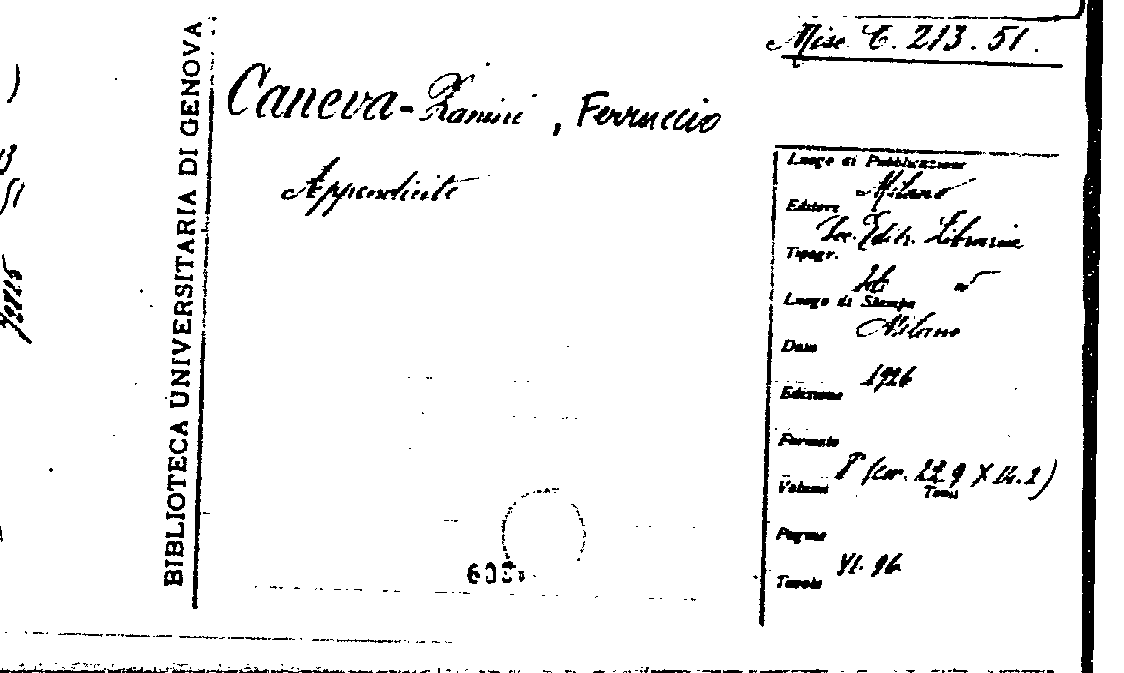 Misc. C. 213. 51.
BIBLIOTECA UNIVERSITARIA DI GENOVA
Caneva-Zanini, Ferruccio
Appendicite
Luogo di Pubblicazione
Milano
Editore
Soc. Editr. Libraria
Tipogr.
Id
Luogo di Stampa
Milano
Data
1926
Edizione
Formato
8° (cm. 22.9 X 14.2)
Volumi Tomi
Pagine
VI. 96
Tavole